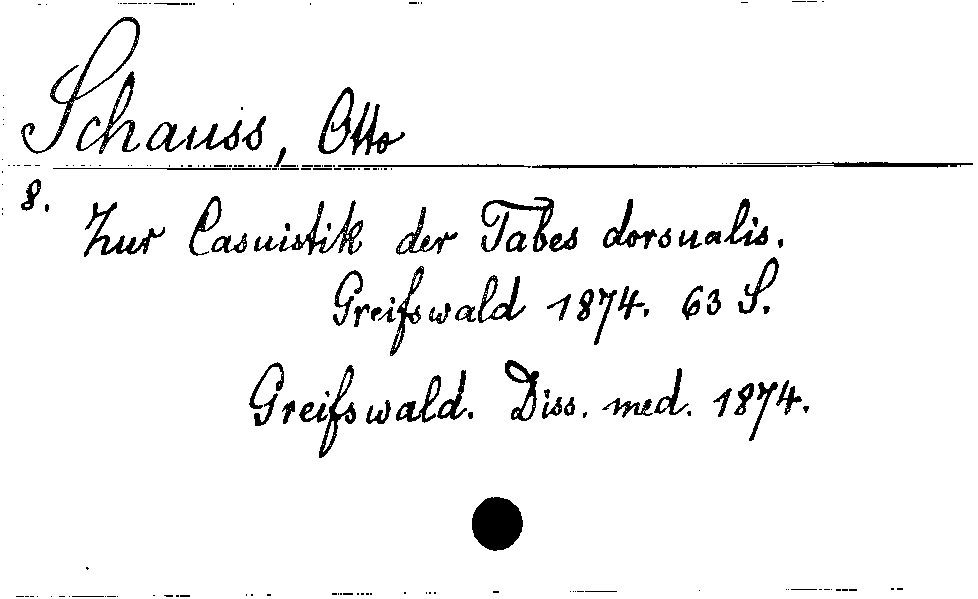 Schauss, Otto
8.
Zur Casuistik der Tabes dorsualis.
Greifswald 1874. 63 S.
Greifswald. Diss. med. 1874.